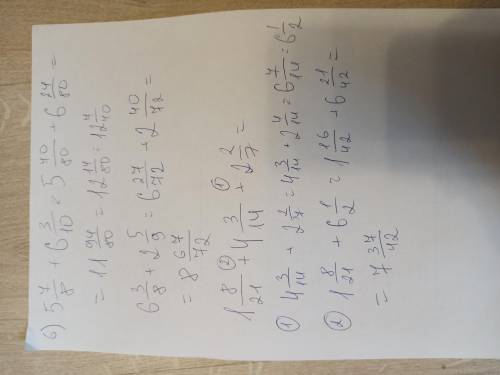 б) 5 7/8 + 6 3/10 = 5 70/80 + 6 24/80 =
= 11 94/80 = 12 14/80 = 12 7/40
6 3/8 + 2 5/9 = 6 27/72 + 2 40/72 =
= 8 67/72
1 8/21 ②+ 4 3/14 ①+ 2 2/7 =
① 4 3/14 + 2 2/7 = 4 3/14 + 2 4/14 = 6 7/14 = 6 1/2
② 1 8/21 + 6 1/2 = 1 16/42 + 6 21/42 =
= 7 37/42